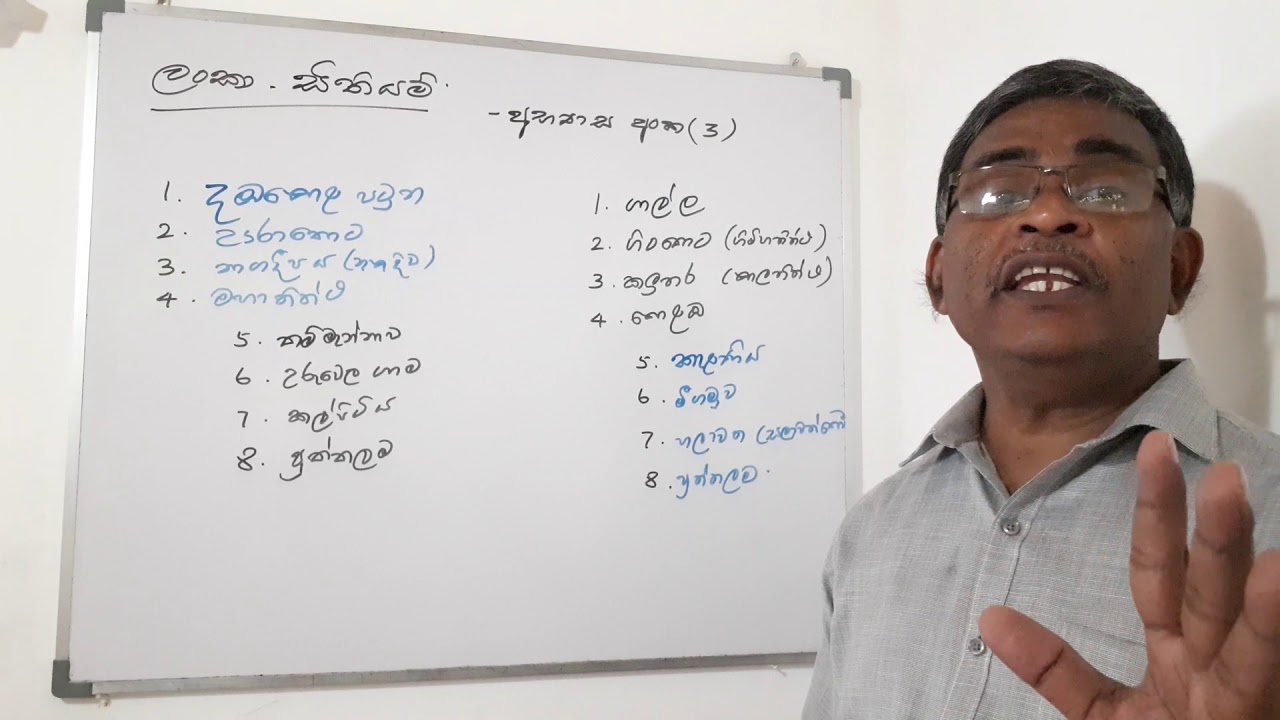 ලංකා . සිතියම්
- අභ්‍යාස අංක (3)
1. දඹකොළ පටුන
2. ඌරාතොට
3. නාගදීපය (නාගදිව)
4. මහාතිත්ථ
5. තම්මැන්නාව
6. උරුවෙල ගාම
7. කල්පිටිය
8. පුත්තලම
1. ගාල්ල
2. ගිංතොට (ගිම්හතිත්ථ)
3. කළුතර (කාලතිත්ථ)
4. කොළඹ
5. කැලණිය
6. මීගමුව
7. හලාවත
8. පුත්තලම